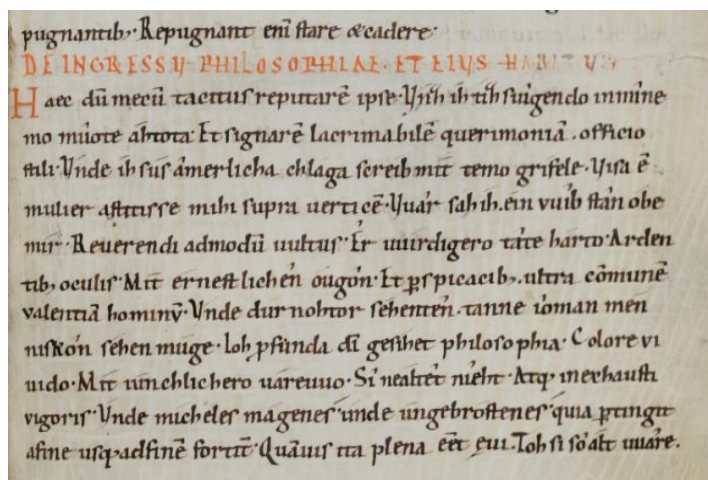 pugnantib; Repugnant enī stare & cadere·
DE INGRESSV PHILOSOPHIAE· ET EIVS HABITV·
Haec dū mecū tacitus reputarē ipse· Vnih ih tih suigendo in mine
mo mūote ahtota· Et signarē lacrimabilē querimoniā . officio
stili· Vnde ih sus âmerlicha chlaga screib mit temo grifele· Visa ē
mulier astitisse mihi supra uerticē· Vuâr sah ih. ein vuib stân obe
mir· Reuerendi admodū uultus· Êr vuirdigero tâte harto· Arden
tib; oculis· Mit ernestlichên ougôn· Et ꝑspicacib;. ultra cōmunē
valentiā hominū· Vnde durnohtor sehentên. tanne ioman men
niskôn sehen muge· Ioh ꝓfunda dī gesihet philosophia· Colore vi
uido· Mit iunchlichero uareuuo· Sî nealtêt nîeht· Atq; inexhausti
vigoris· Vnde micheles magenes unde ungebrostenes quia ꝑtingit
a fine usq; ad finē fortit̄· Quāuis ita plena eēt ęui· Ioh sî sô alt uuâre.